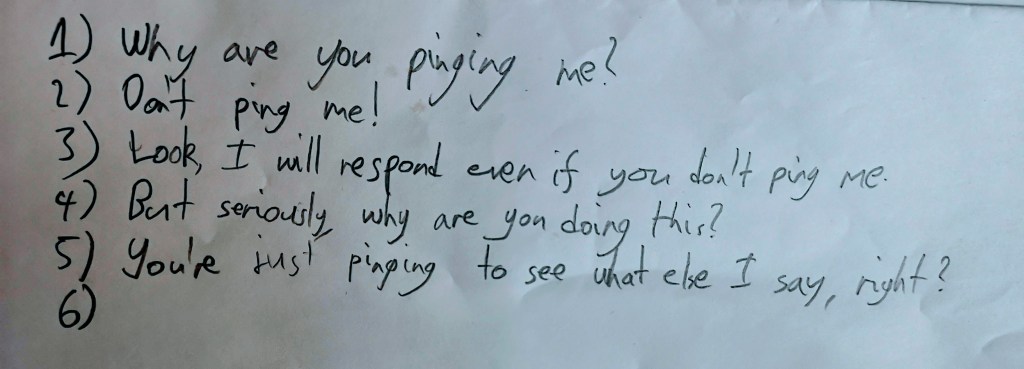 1) Why are you pinging me?
2) Don't ping me!
3) Look, I will respond even if you don't ping me.
4) But seriously, why are you doing this?
5) You're just pinging to see what else I say, right?
6)